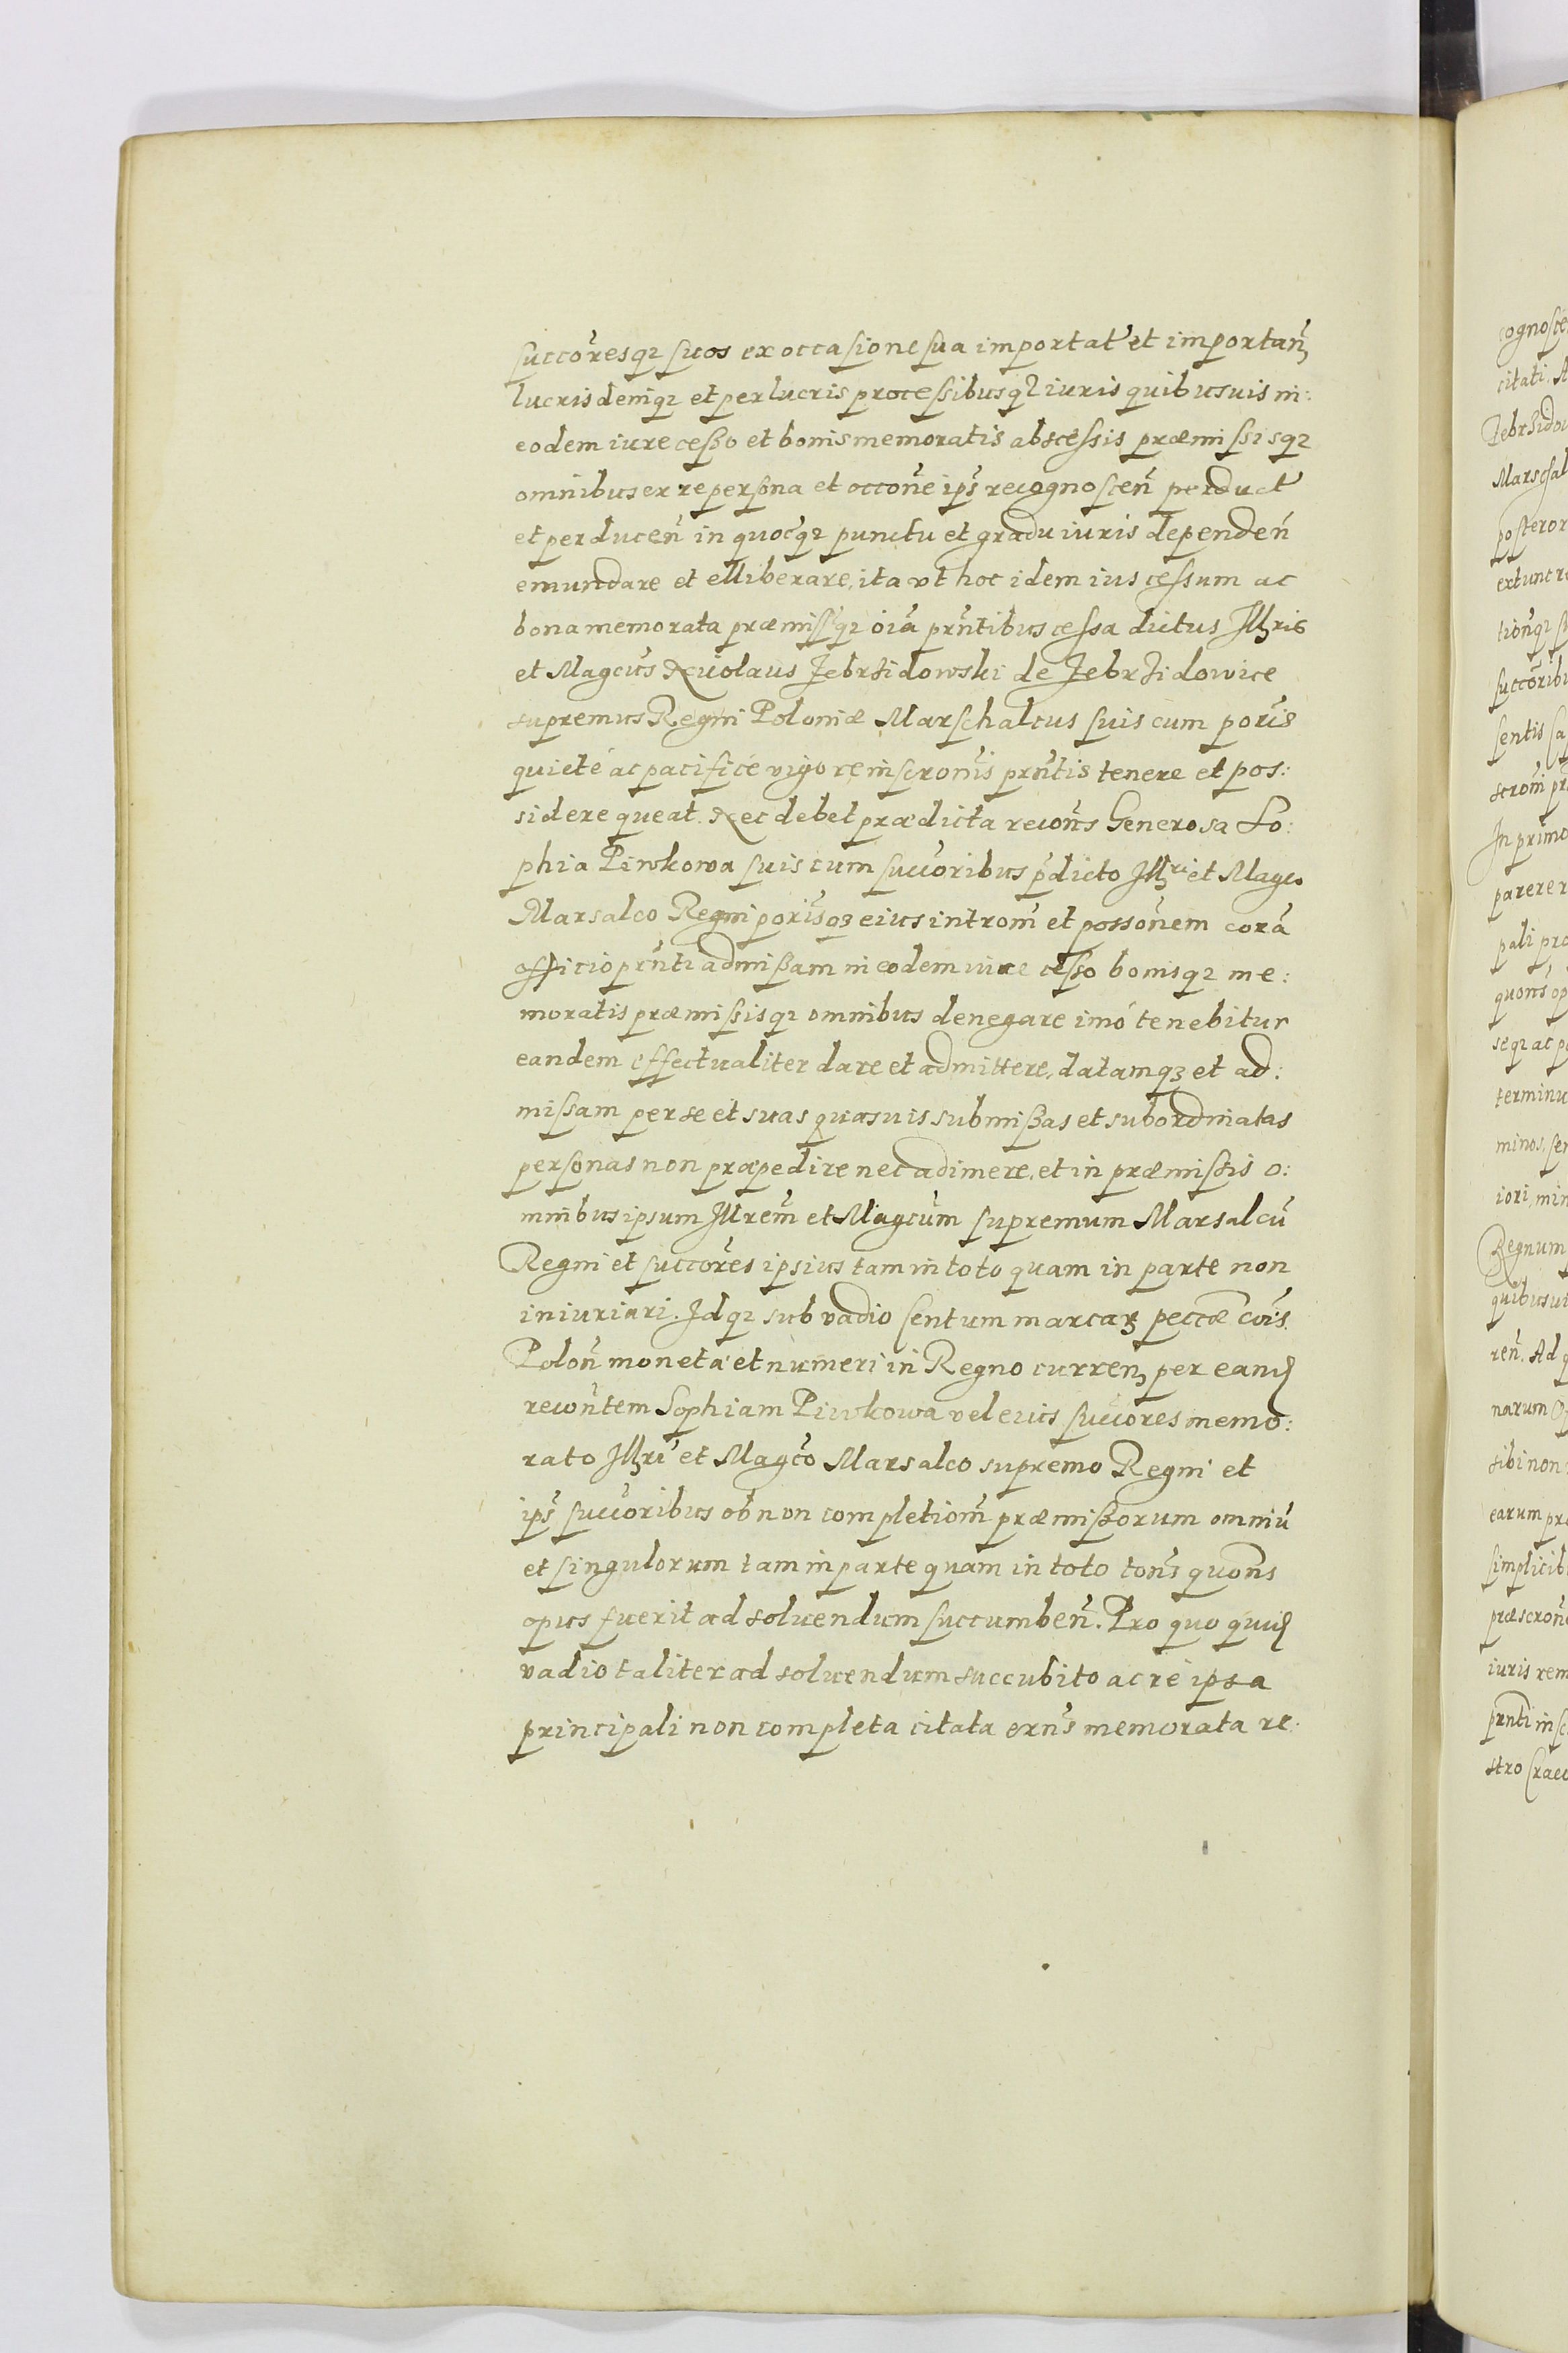 succõresq₃ suos ex occasione sua importat̃ et importan̄
lucris deniq₃ et per lucris processibusq₃ iuris quibusuis in:
eodem iure cesso et bonis memoratis abscessis præmissisq₃
omnibus ex re persona et occoñe ips̃ recognoscen̄ perduct̃
et perducen̄ in quocq₃ punctu et gradu iuris dependen̄
emundare et elliberare, ita vt hoc idem ius cessum ac
bona memorata præmissq₃ oiã prñtibus cessa dictus Illris
et Magcũs Nicolaus Zebrzidowski de Zebrzidowice
supremus Regni Poloniæ Marschalcus suis cum poris̃
quietè ac pacificè vigore inscronis̃ prñtis tenere et pos:
sidere queat. Nec debet prædicta recoñs Generosa So:
phia Piwkowa suis cum succoribus p̃dicto Illri et Magco
Marsalco Regni poris̃q₃ eius introm̃ et possoñem corã
officio prñti admissam in eodem iure cesso bonisq₃ me:
moratis præmissisq₃ omnibus denegare imò tenebitur
eandem effectualiter dare et admittere, datamq₃ et ad:
missam per se et suas quasuis submissas et subordinatas
personas non præpedire nec adimere, et in præmissis o:
mnibus ipsum Illrem̃ et Magcũm supremum Marsalcũ
Regni et succõres ipsius tam in toto quam in parte non
iniuriari. Idq₃ sub vadio Centum marcar₃ peccæ cõis
Polon̄ moneta et numeri in Regno curren₃ per eand̃
recoñtem Sophiam Piwkowa vel eius succores memo:
rato Illri et Magcõ Marsalco supremo Regni et
ips̃ succoribus ob non completiom̃ præmissorum omniũ
et singulorum tam in parte quam in toto toñs quoñs
opus fuerit ad soluendum succumben̄. Pro quo quid̃
vadio taliter ad soluendum succubito ac re ipsa
principali non completa citata exñs memorata re: